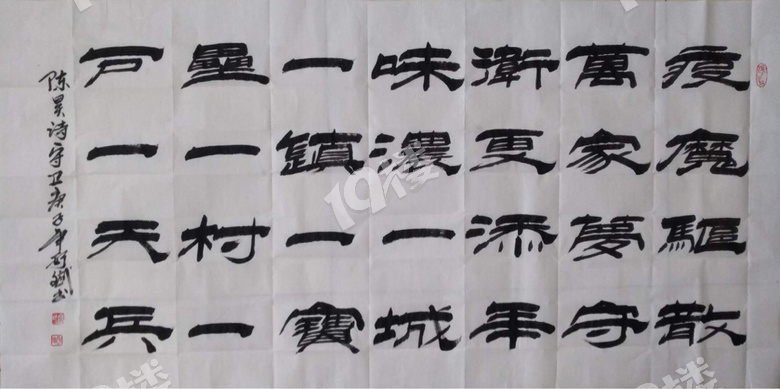 疫魔驅散
萬家夢守
衛更添年
味濃一城
一鎮一寶
壘一村一
戶一天兵
陈昊诗守卫庚子年书
19楼